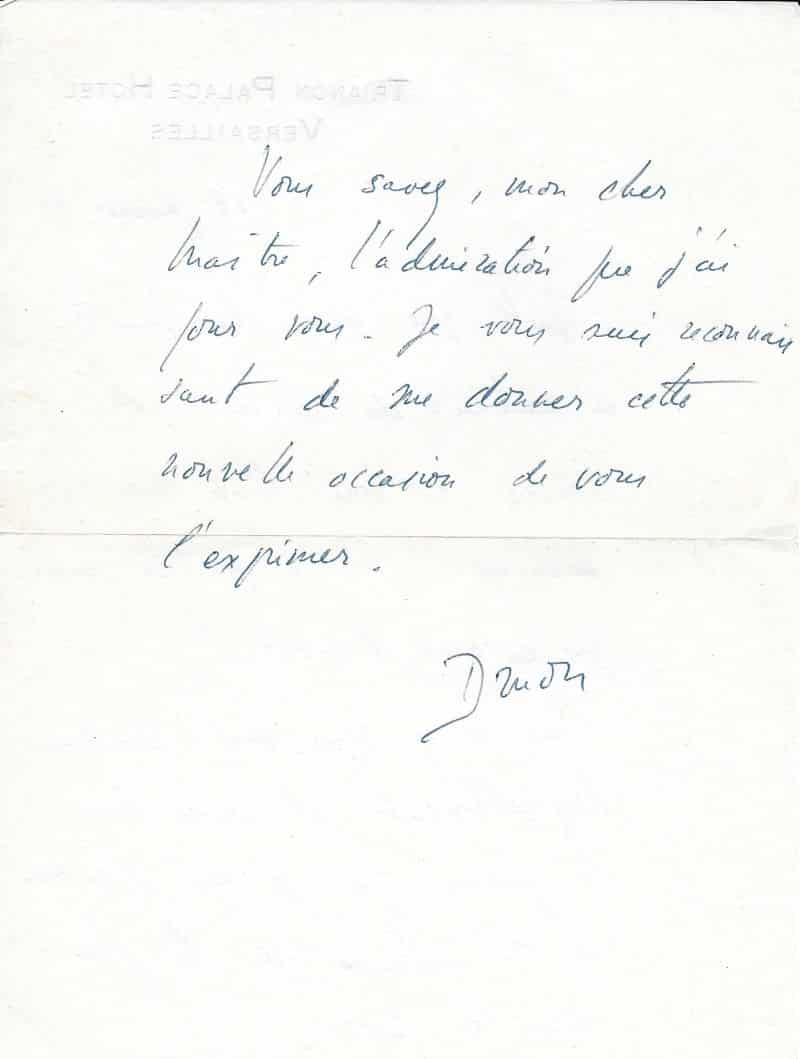 TRIANON PALACE HOTEL
VERSAILLES
Vous savez, mon cher
Maître, l'admiration que j'ai
pour vous. Je vous suis reconnais
sant de me donner cette
nouvelle occasion de vous
l'exprimer.
Druon